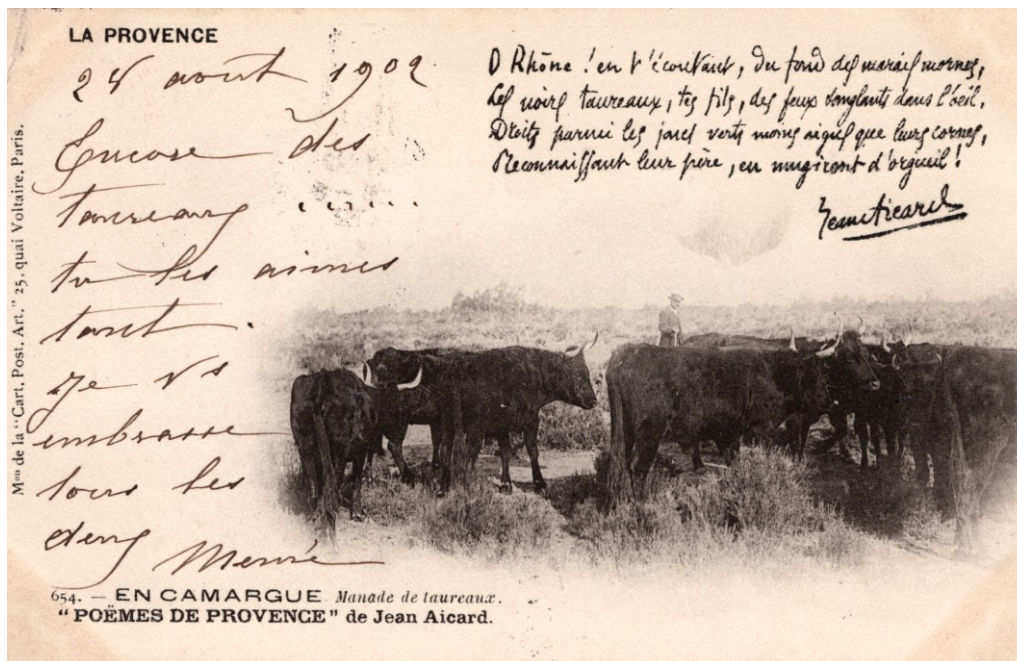 LA PROVENCE
24 août 1902
Encore des
taureaux ......
tu les aimes
tant.
Je vs
embrasse
tous les
deux
O Rhône ! en t'écoutant, du fond des marais mornes,
Les noirs taureaux, tes fils, des feux sanglants dans l'œil,
Droits parmi les joncs verts moins aigus que leurs cornes,
Reconnaissant leur père, en mugiront d'orgueil !
Jean Aicard
Mon de la "Cart. Post. Art." 25, quai Voltaire, Paris.
654. — EN CAMARGUE Manade de taureaux.
"POËMES DE PROVENCE" de Jean Aicard.